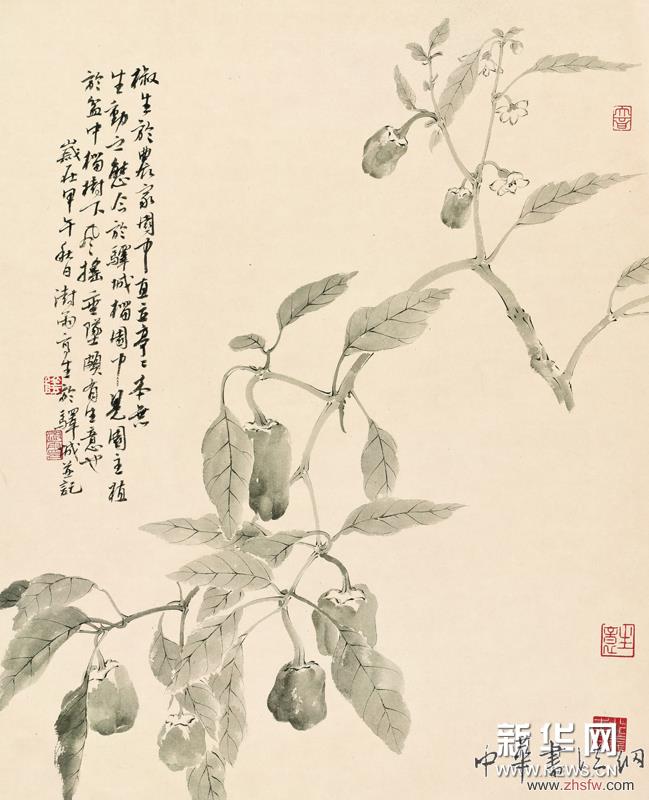 椒生於農家園中直立亭亭本無
生動之態今於驛城榴園中見園主植
於盆中榴樹下風搖垂墜頗有生意也
歲在甲午秋日澍雨寫生於驛城並記
生意
新华网
WWW.NEWS.CN
中華書法網
www.zhsfw.com